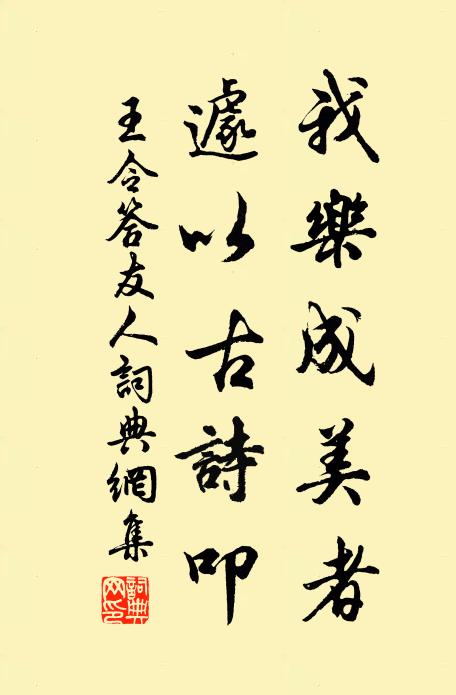 我樂成美者
遽以古詩叩
王令答友人詞典網集
詞典網印